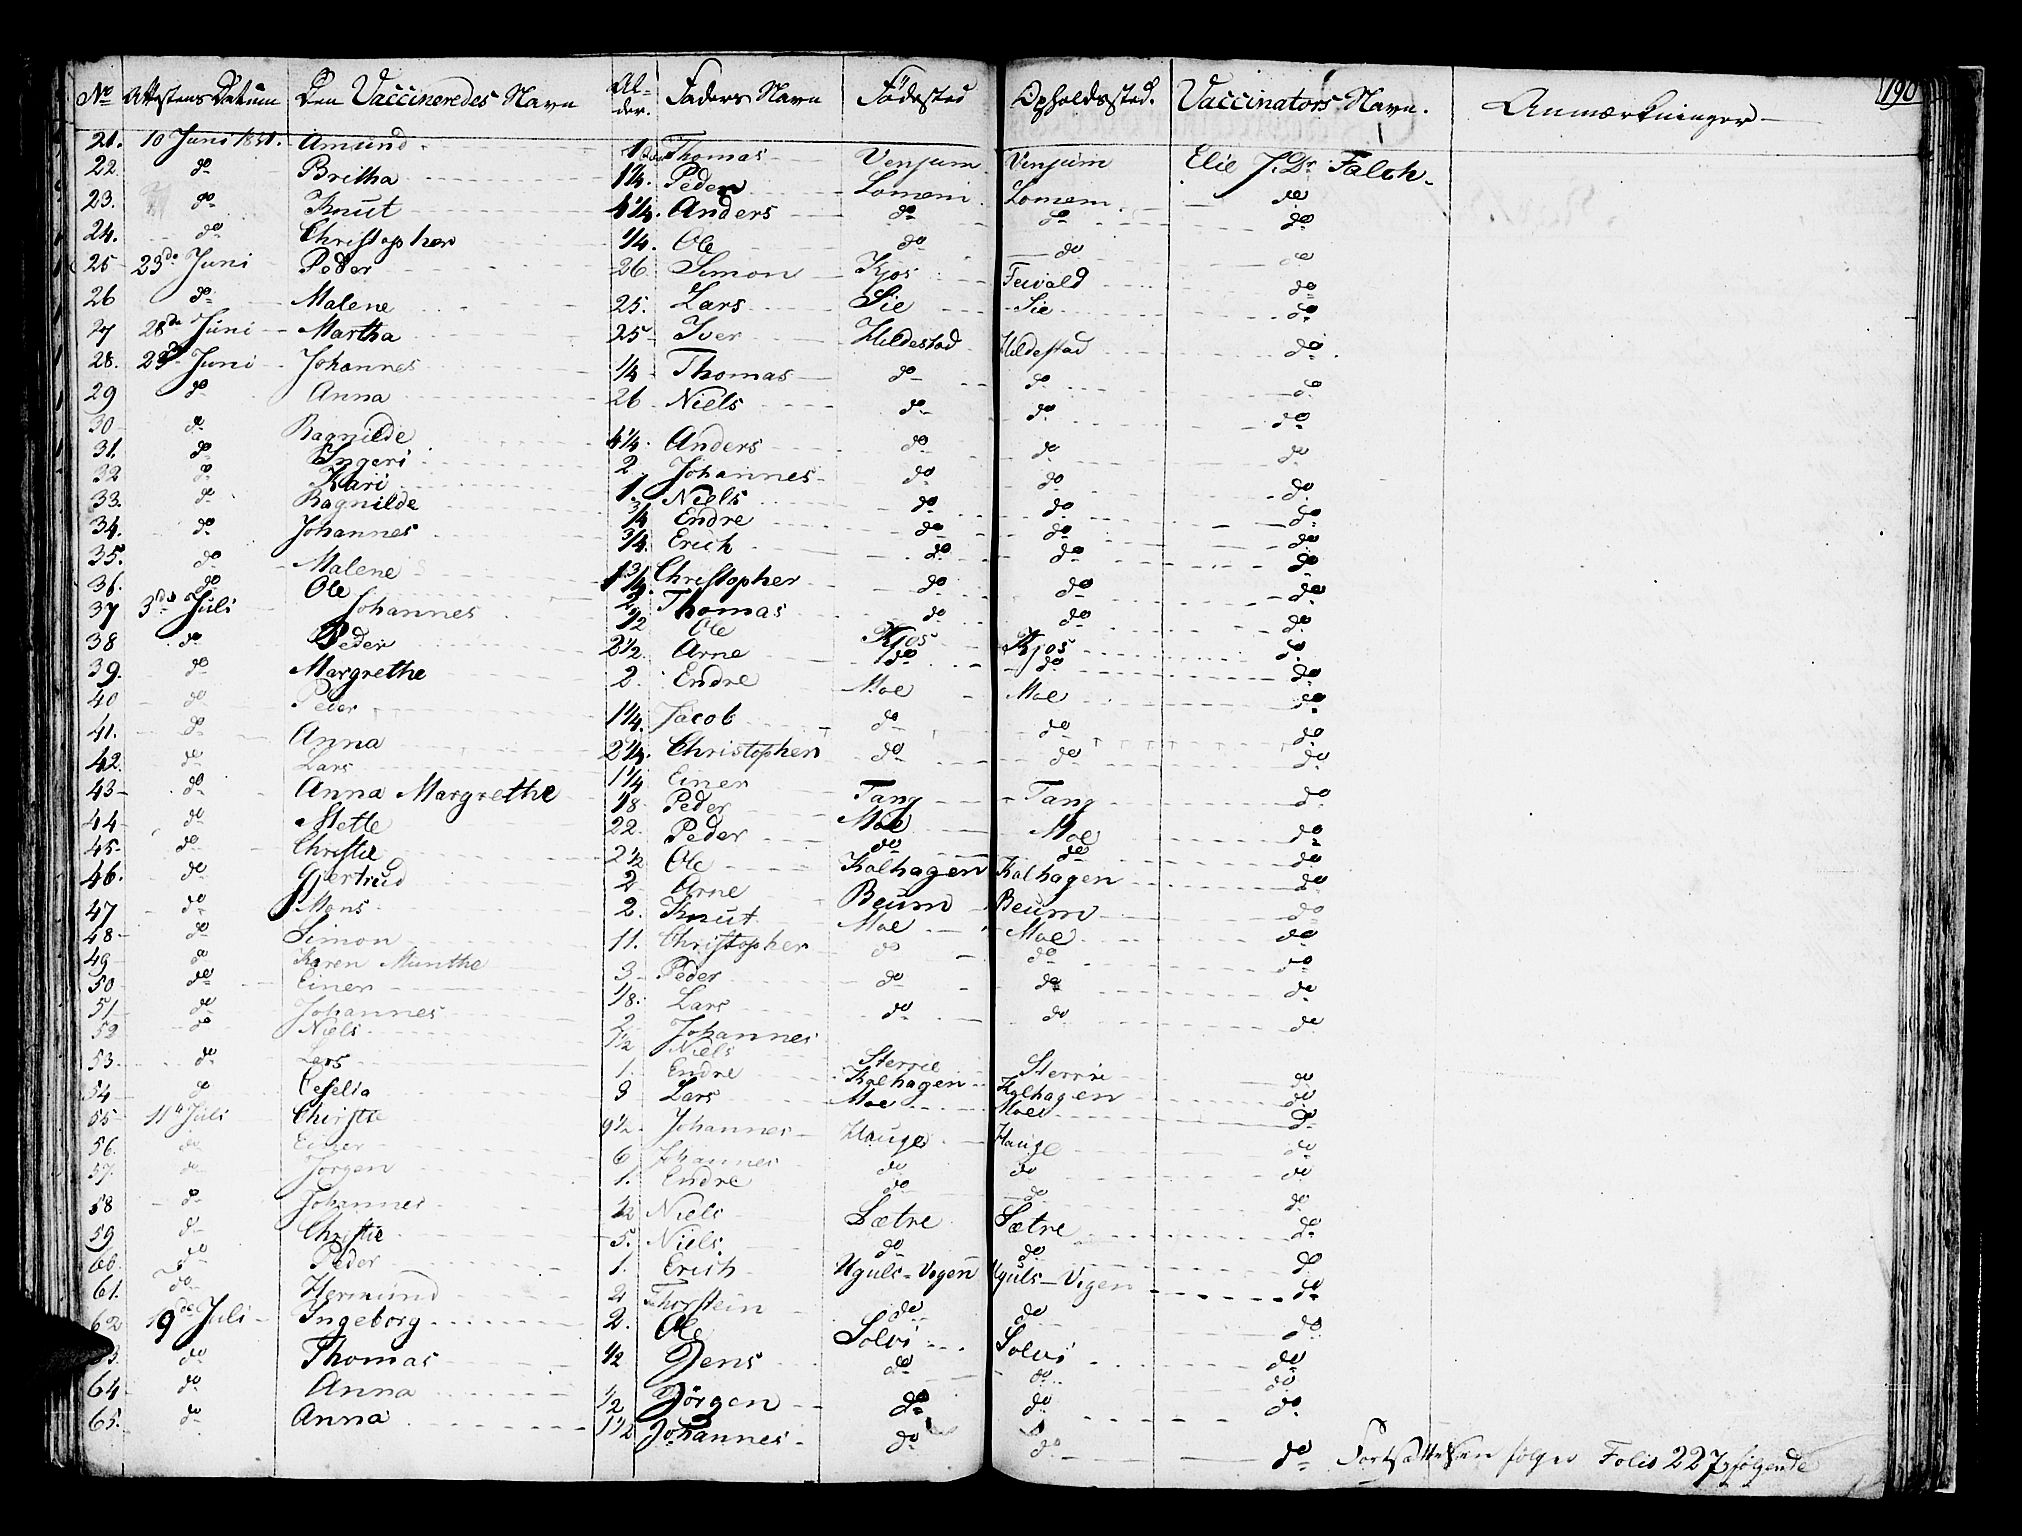 190
No Attestens Datum Den Vaccineredes Navn Al-der. Faders Navn Födested Opholdssted. Vaccinators Navn. Anmærkninger
21. 10 Juni 1831. Amund 1 Thomas Venjum Venjum Elie Falch
22 do Britha 1 1/4. Peder Lomeni Lomem do
23. do Knut 4 1/4. Anders do do do
24. do Christopher 1/4. Ole do do do
25 23de Juni Peder 26 Simon Kjos Feivald do
26 do Malene 25. Lars Sie Sie do
27 28de Juni Martha 25 Iver Hildestad Hildestad do
28. 29de Juni Johannes 1/4 Thomas do do do
29 do Anna 26 Niels do do do
30 do Ragnilde 4 1/4. Anders do do do
31. do Ingeri 2 Johannes do do do
32 do Kari 1. Niels do do do
33. do Ragnilde 3/4 Endre do do do
34. do Johannes 3/4. Erich do do do
35. do Malene 1 3/4. Christopher do do do
36. do Ole 2 Thomas do do do
37 3de Juli Johannes 1/2 Ole Kjos Kjos do
38 do Peder 2 1/2. Arne do do do
39. do Margrethe 2. Endre Moe Moe do
40 do Peder 1 1/4. Jacob do do do
41. do Anna 2 1/4. Christopher do do do
42. do Lars 1 1/4 Einer
43 do Anna Margrethe 18 Peder Tang Tang do
44 do Mette 22. Peder Moe Moe do
45 do Christie 2 1/2 Ole do do do
46. do Gjertrud 2 Arne Kalhagen Kalhagen do
47 do Mons 2. Knut Beum Beum do
48 do Simon 11. Christopher Moe Moe do
49 do Karen Munthe 3 Peder do do do
50 do Einer 18. Lars do do do
51 do Johannes 2 Johannes do do do
52 do Niels 1/2 Niels
53. do Lars 1. Endre Sterrie Sterrie do
54 do Ceselia 9 Lars Kalhagen Kalhagen do
55 11te Juli Christie 9 1/2 Johannes Moe Moe do
56. do Einer 6 Johannes Hauge Hauge do
57. do Jörgen 1. Endre do do do
58 do Johannes 1/2 Niels do do do
59 do Christie 5. Niels. Sætre Sætre do
60. do Peder 1. Erich do do do
61. do Hermund 2 Thorstein Uguls-Vegen Uguls-Vegen do
62 19de Juli Ingeborg 2. Ole do do do
63. do Thomas 1/2 Jens Solvi Solvi do
64 do Anna 1/2 Jörgen do do do
65. do Anna 1 1/2 Johannes do do do
Fortsættelsen følger Folio 227 følgende